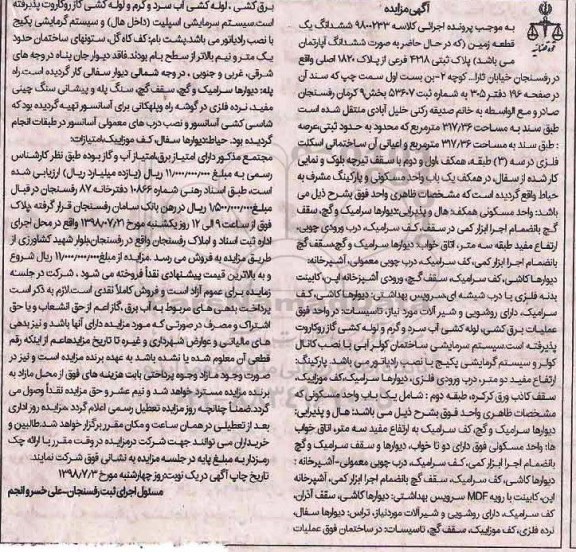 آگهی مزایده
به موجب پرونده اجرائی کلاسه ۹۸۰۰۲۳۳ ششدانگ یک
قطعه زمین (که در حال حاضر به صورت ششدانگ آپارتمان
می باشد) پلاک ثبتی ۴۲۱۸ فرعی از پلاک ۱۸۲ اصلی واقع
در رفسنجان خیابان تارا... کوچه ۲-بن بست اول سمت چپ که سند آن
در صفحه ۱۹۶ دفتر ۳۰۵ به شماره ثبت ۵۳۶۰۷ بخش ۹ کرمان رفسنجان
صادر و مع الواسطه به خانم صدیقه رکنی خلیل آبادی منتقل شده است
طبق سند به مساحت ۳۱۷/۳۶ مترمربع که محدود به حدود ثبتی:عرصه
: طبق سند به مساحت ۳۱۷/۳۶ مترمربع و اعیانی آن ساختمانی اسکلت
فلزی در سه (۳) طبقه، همکف، اول و دوم با سقف تیرچه بلوک و نمایی
کار شده از سفال، در همکف یک باب واحد مسکونی و پارکینگ مشرف به
حیاط واقع گردیده است که مشخصات ظاهری واحد فوق بشرح ذیل می
باشد: واحد مسکونی همکف: هال و پذیرایی:دیوارها سرامیک و گچ، سقف
گچ بانضمام اجرا ابزار کمی در سقف، کف سرامیک، درب ورودی چوبی،
ارتفاع مفید طبقه سه متر، اتاق خواب: دیوارها سرامیک و گچ،سقف گچ
بانضمام اجرا ابزار کمی، کف سرامیک، درب چوبی معمولی، آشپزخانه:
دیوارها کاشی، کف سرامیک، سقف گچ، ورودی آشپزخانه اپن، کابینت
بدنه فلزی با درب شیشه ای،سرویس بهداشتی: دیوارها کاشی، کف
سرامیک، دارای روشویی و شیر آلات مورد نیاز، تاسیسات: در واحد فوق
عملیات برق کشی، لوله کشی آب سرد و گرم و لوله کشی گاز روکاروت
پذیرفته است.سیستم سرمایشی ساختمان کولر آبی با نصب کانال
کولر و سیستم گرمایشی پکیج با نصب رادیاتور می باشد. پارکینگ:
ارتفاع مفید دو متر، درب ورودی فلزی، دیوارها سرامیک،کف موزاییک،
سقف کاذب ورق کرکره، طبقه دوم : شامل یک باب واحد مسکونی که
مشخصات ظاهری واحد فوق بشرح ذیل می باشد: هال و پذیرایی:
دیوارها سرامیک و گچ، کف سرامیک به ارتفاع مفید سه متر، اتاق خواب
ها: واحد مسکونی فوق دارای دو تا خواب، دیوارها و سرامیک و گچ
بانضمام اجرا ابزار کمی، کف سرامیک، درب چوبی معمولی-آشپزخانه :
دیوارها کاشی، کف سرامیک، سقف گچ بانضمام اجرا ابزار کمی، آشپزخانه
اپن، کابینت با رویه MDF سرویس بهداشتی: دیوارها کاشی، سقف آذران،
کف سرامیک، دارای روشویی و شیر آلات موردنیاز، تراس: دیوارها سفال،
نرده فلزی، کف موزاییک، سقف گچ، تاسیسات: در ساختمان فوق عملیات
برق کشی ، لوله کشی آب سرد و گرم و لوله کشی گاز روکاروت پذیرفته
است.سیستم سرمایشی اسپلیت (داخل هال) و سیستم گرمایشی پکیج
با نصب رادیاتور می باشد.پشت بام: کف کاه گل، ستونهای ساختمان حدود
یک متر و نیم بالاتر از سطح بام بودند.فاقد دیوار جان پناه در وجه های
شرقی، غربی و جنوبی ، در وجه شمالی دیوار سفالی کار گردیده است.راه
پله: دیوارها سرامیک و گچ، سقف گچ، سنگ پله و پیشانی سنگ چینی
مفید، نرده فلزی در گوشه راه پله،مکانی برای آسانسور تهیه گردیده بود که
شاسی کشی آسانسور و نصب درب های معمولی آسانسور در طبقات انجام
گردیده بود. حیاط:دیوارها سفال، کف موزاییک،امتیازات:
مجتمع مذکور دارای امتیاز برق،امتیاز آب و گاز بوده طبق نظر کارشناس
رسمی به مبلغ ۱۱/۰۰۰/۰۰۰/۰۰۰ ریال (یازده میلیارد ریال) ارزیابی شده
است، طبق اسناد رهنی شماره ۱۰۸۶۶ دفترخانه ۸۷ رفسنجان در قبال
مبلغ ۱/۵۰۰/۰۰۰/۰۰۰ ریال در رهن بانک سامان رفسنجان قرار گرفته پلاک
فوق از ساعت ۹ الی ۱۲ روز یکشنبه مورخ ۱۳۹۸/۰۷/۲۱ واقع در محل اجرای
اداره ثبت اسناد و املاک رفسنجان واقع در رفسنجان،بلوار شهید کشاورزی از
طریق مزایده به فروش می رسد .مزایده از مبلغ ۱۱/۰۰۰/۰۰۰/۰۰۰ ریال شروع
و به بالاترین قیمت پیشنهادی نقداً فروخته می شود . شرکت در جلسه
مزایده برای عموم آزاد است و فروش کاملاً نقدی است.لازم به ذکر است
پرداخت بدهی های مربوط به آب برق ،گاز اعم از حق انشعاب و یا حق
اشتراک و مصرف در صورتی که مورد مزایده دارای آنها باشد و نیز بدهی
های مالیاتی و عوارض شهرداری و غیره تا تاریخ مزایده،اعم از اینکه رقم
قطعی آن معلوم شده یا نشده باشد به عهده برنده مزایده است و نیز در
صورت وجود مازاد وجوه پرداختی بابت هزینه های فوق از محل مازاد به
برنده مزایده مسترد خواهد شد و نیم عشر و حق مزایده نقداً وصول می
گردد.ضمناً چنانچه روز مزایده تعطیل رسمی اعلام گردد ،مزایده روز اداری
بعد از تعطیلی در همان ساعت و مکان مقرر برگزار خواهد شد.طالبین و
خریداران می توانند جهت شرکت درمزایده در وقت مقرر با ارائه چک
رمزدار به مبلغ پایه در جلسه مزایده به نشانی فوق شرکت نمایند.
تاریخ چاپ آگهی در یک نوبت:روز چهارشنبه مورخ ۱۳۹۸/۷/۳
مسئول اجرای ثبت رفسنجان-علی خسرو انجم